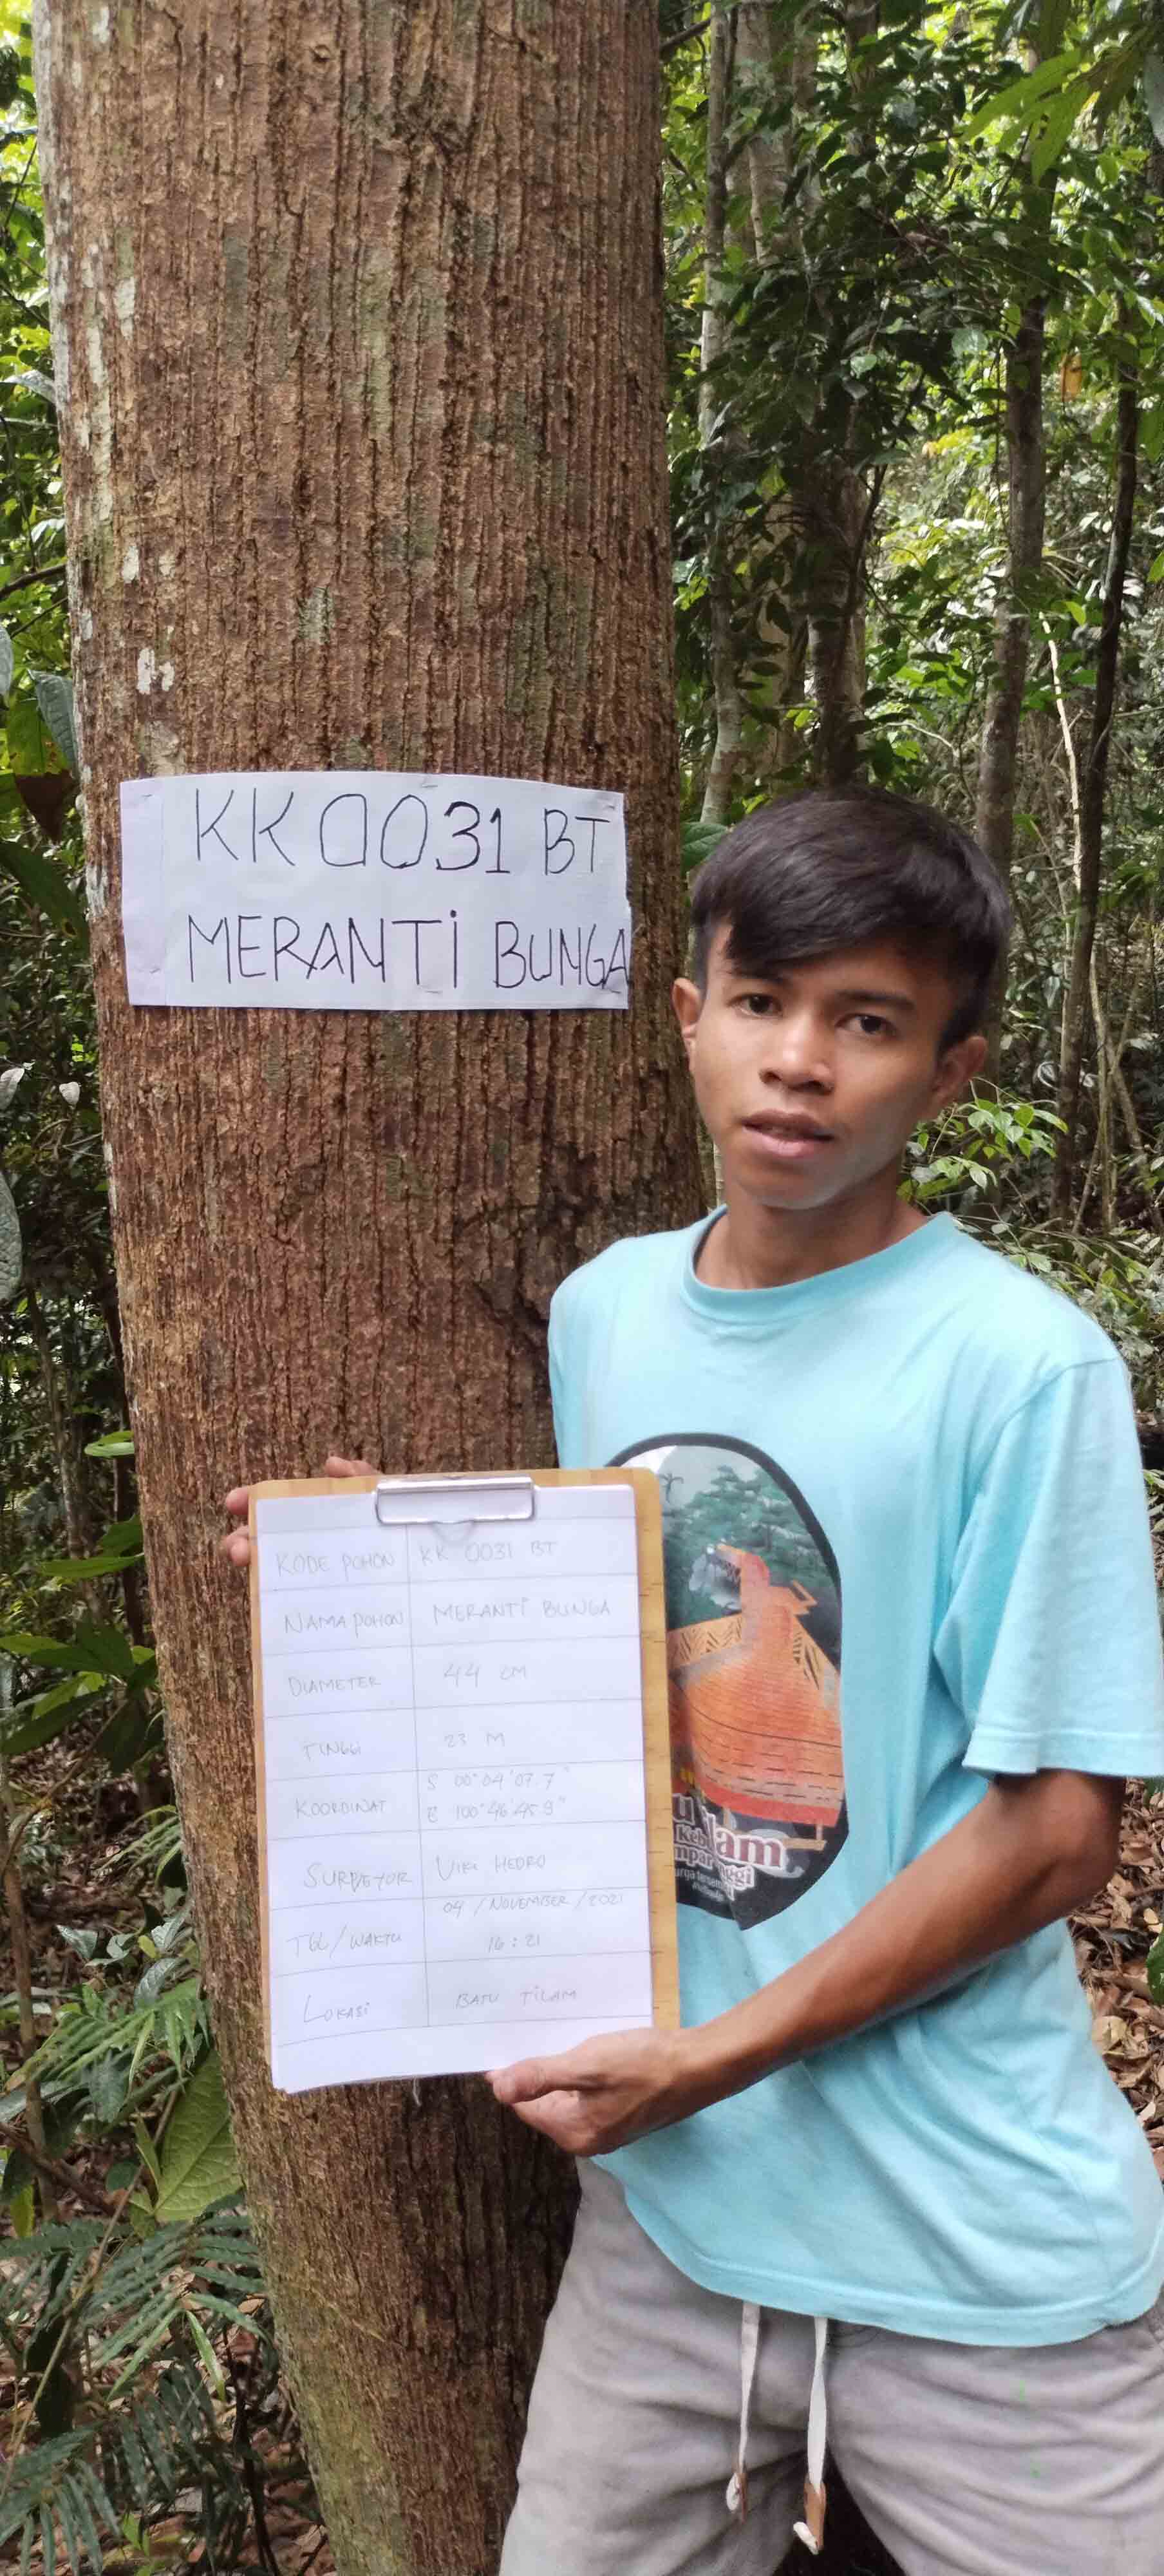 KK 0031 BT
MERANTI BUNGA
KODE POHON KK 0031 BT
NAMA POHON MERANTI BUNGA
DIAMETER 44 CM
TINGGI 23 M
KOORDINAT S 00° 04' 07.7"
E 100° 46' 45.9"
SURVEYOR VIKI HEDRO
TGL/WAKTU 04 / NOVEMBER / 2021
16 : 21
LOKASI BATU TILAM
lam
Keb